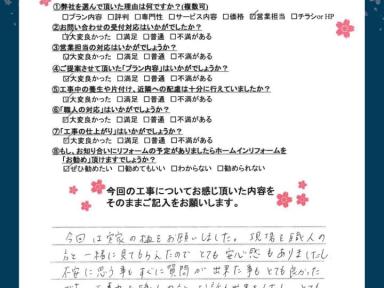 ①弊社を選んで頂いた理由は何ですか?(複数可)
□プラン内容 □評判 □専門性 □サービス内容 □価格 ☑営業担当 □チラシorHP
②お問い合わせの受付対応はいかがでしたか?
☑大変良かった □満足 □普通 □不満がある
③営業担当の対応はいかがでしょうか?
☑大変良かった □満足 □普通 □不満がある
④ご提案させて頂いた「プラン内容」はいかがでしたか?
☑大変良かった □満足 □普通 □不満がある
⑤工事中の養生や片付け、近隣への配慮は十分に行えていましたか?
☑大変良かった □満足 □普通 □不満がある
⑥「職人の対応」はいかがでしたか?
☑大変良かった □満足 □普通 □不満がある
⑦「工事の仕上がり」はいかがでしょうか?
☑大変良かった □満足 □普通 □不満がある
⑧もし、お知り合いにリフォームの予定がありましたらホームインリフォームを
「お勧め」頂けますでしょうか?
☑ぜひ勧めたい □勧めてもいい □わからない □勧められない
今回の工事についてお感じ頂いた内容を
そのままご記入をお願いします。
今回は実家の植をお願いしました。現場を職人の
方と一緒に見てもらえたのでとても安心感もありましたし
不安に思う事もすぐに質問が出来た事もとても良かった